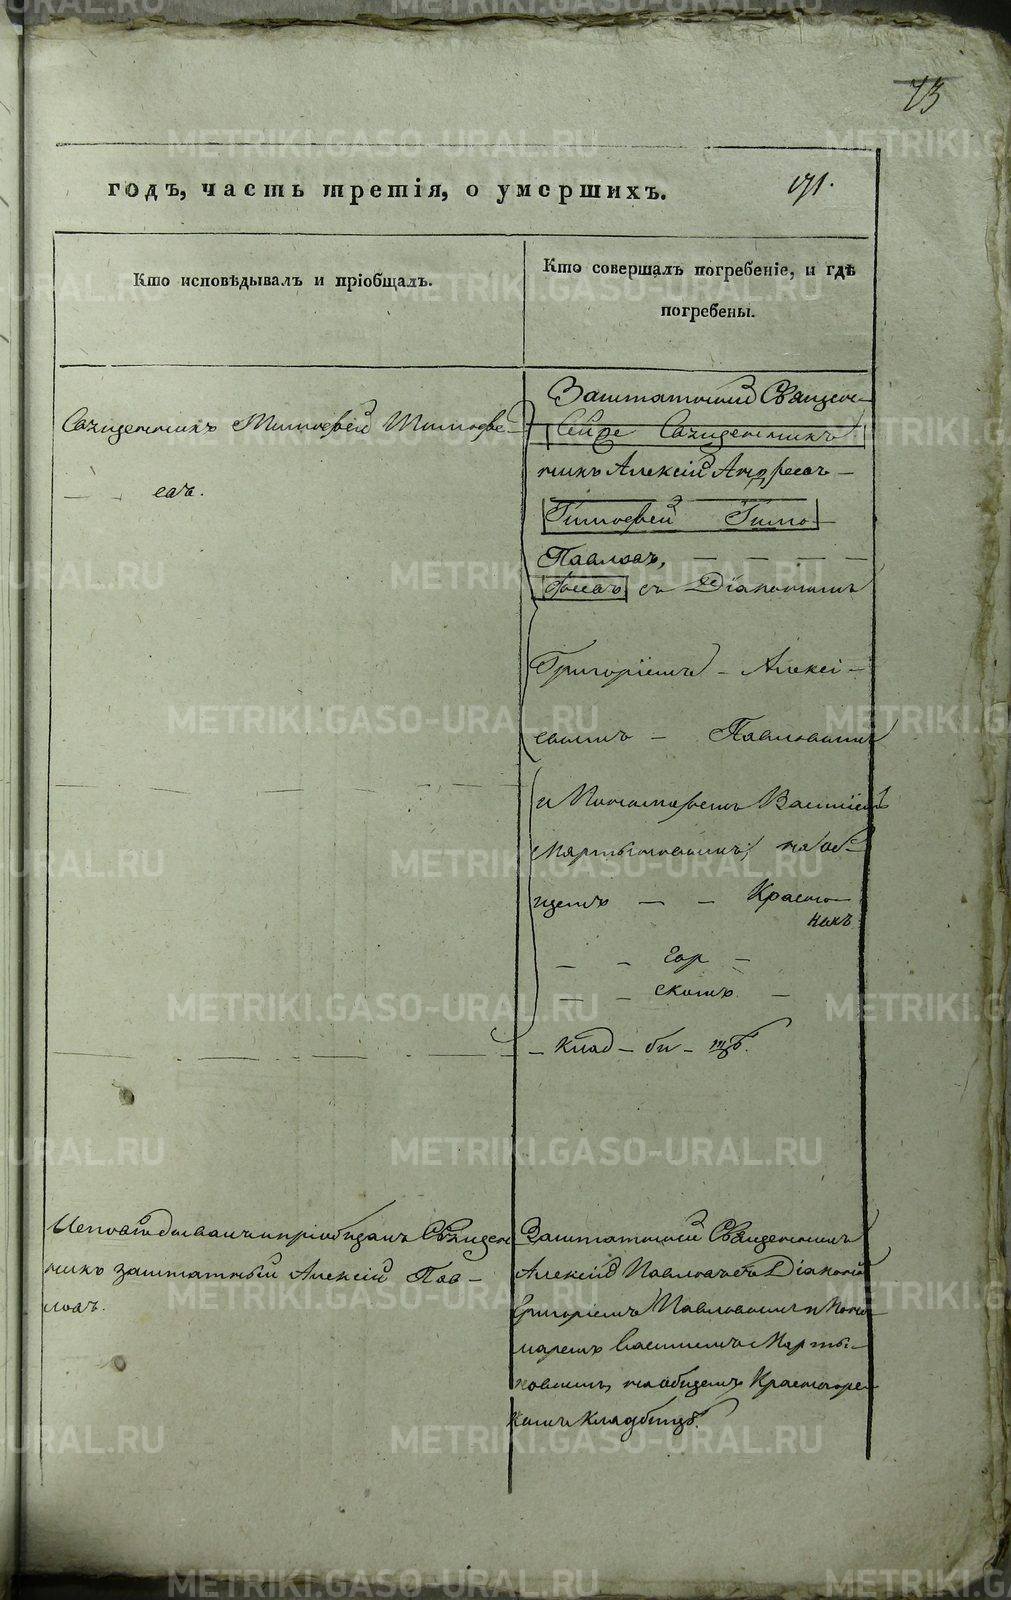 73
годъ, часть третія, о умершихъ.
171.
Кто исповѣдывалъ и пріобщалъ.
Кто совершалъ погребеніе, и гдѣ
погребены.
Священникъ Тимоѳей Тимоѳе-
евъ.
Заштатный Священ-
Сей же Священникъ
никъ Алексій Андреевъ
Тимоѳей Тимо-
Павловъ,
ѳеевъ съ Діакономъ
Григоріемъ Алексі-
евымъ Павловымъ
и Пономаремъ Василіемъ
Мартыновымъ, на об-
щемъ Красно-
гор
скомъ
клад-би-щѣ.
Исповѣдывалъ и пріобщалъ Священ
никъ заштатный Алексій Пав-
ловъ.
Заштатный Священникъ
Алексій Павловъ съ Діакономъ
Григоріемъ Павловымъ и Поно
маремъ Василіемъ Марты-
новымъ, на общемъ Красногорс
комъ кладбищѣ.
METRIKI.GASO-URAL.RU